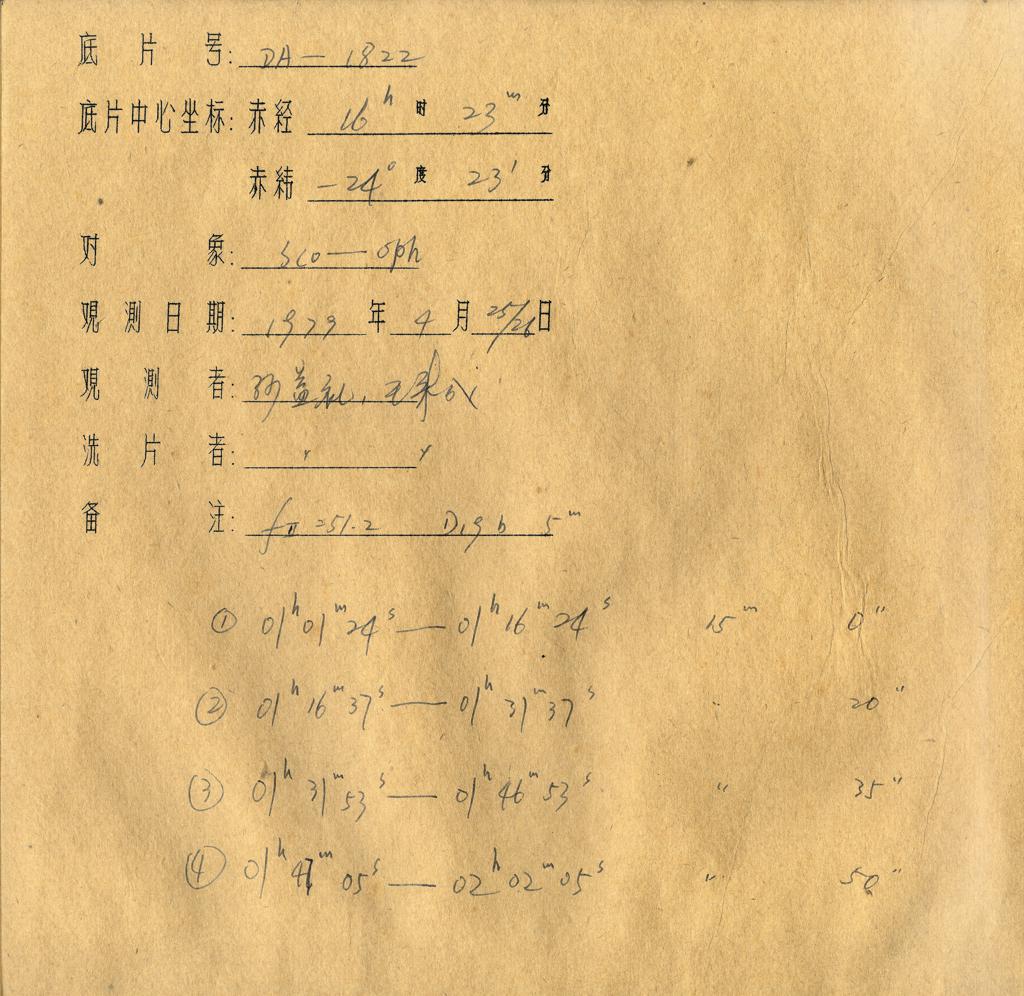 底片号: DA — 1822
底片中心坐标: 赤经 16ʰ 时 23ᵐ 分
赤纬 -24° 度 23' 分
对象: Sco — Oph
观测日期: 1979 年 4 月 25/26 日
观测者: 孙益礼,
洗片者: 〃 〃
备注: fII = 51.2 5ᵐ
① 01ʰ 01ᵐ 24ˢ — 01ʰ 16ᵐ 24ˢ 15ᵐ 0"
② 01ʰ 16ᵐ 37ˢ — 01ʰ 31ᵐ 37ˢ 〃 20"
③ 01ʰ 31ᵐ 53ˢ — 01ʰ 46ᵐ 53ˢ 〃 35"
④ 01ʰ 47ᵐ 05ˢ — 02ʰ 02ᵐ 05ˢ 〃 50"